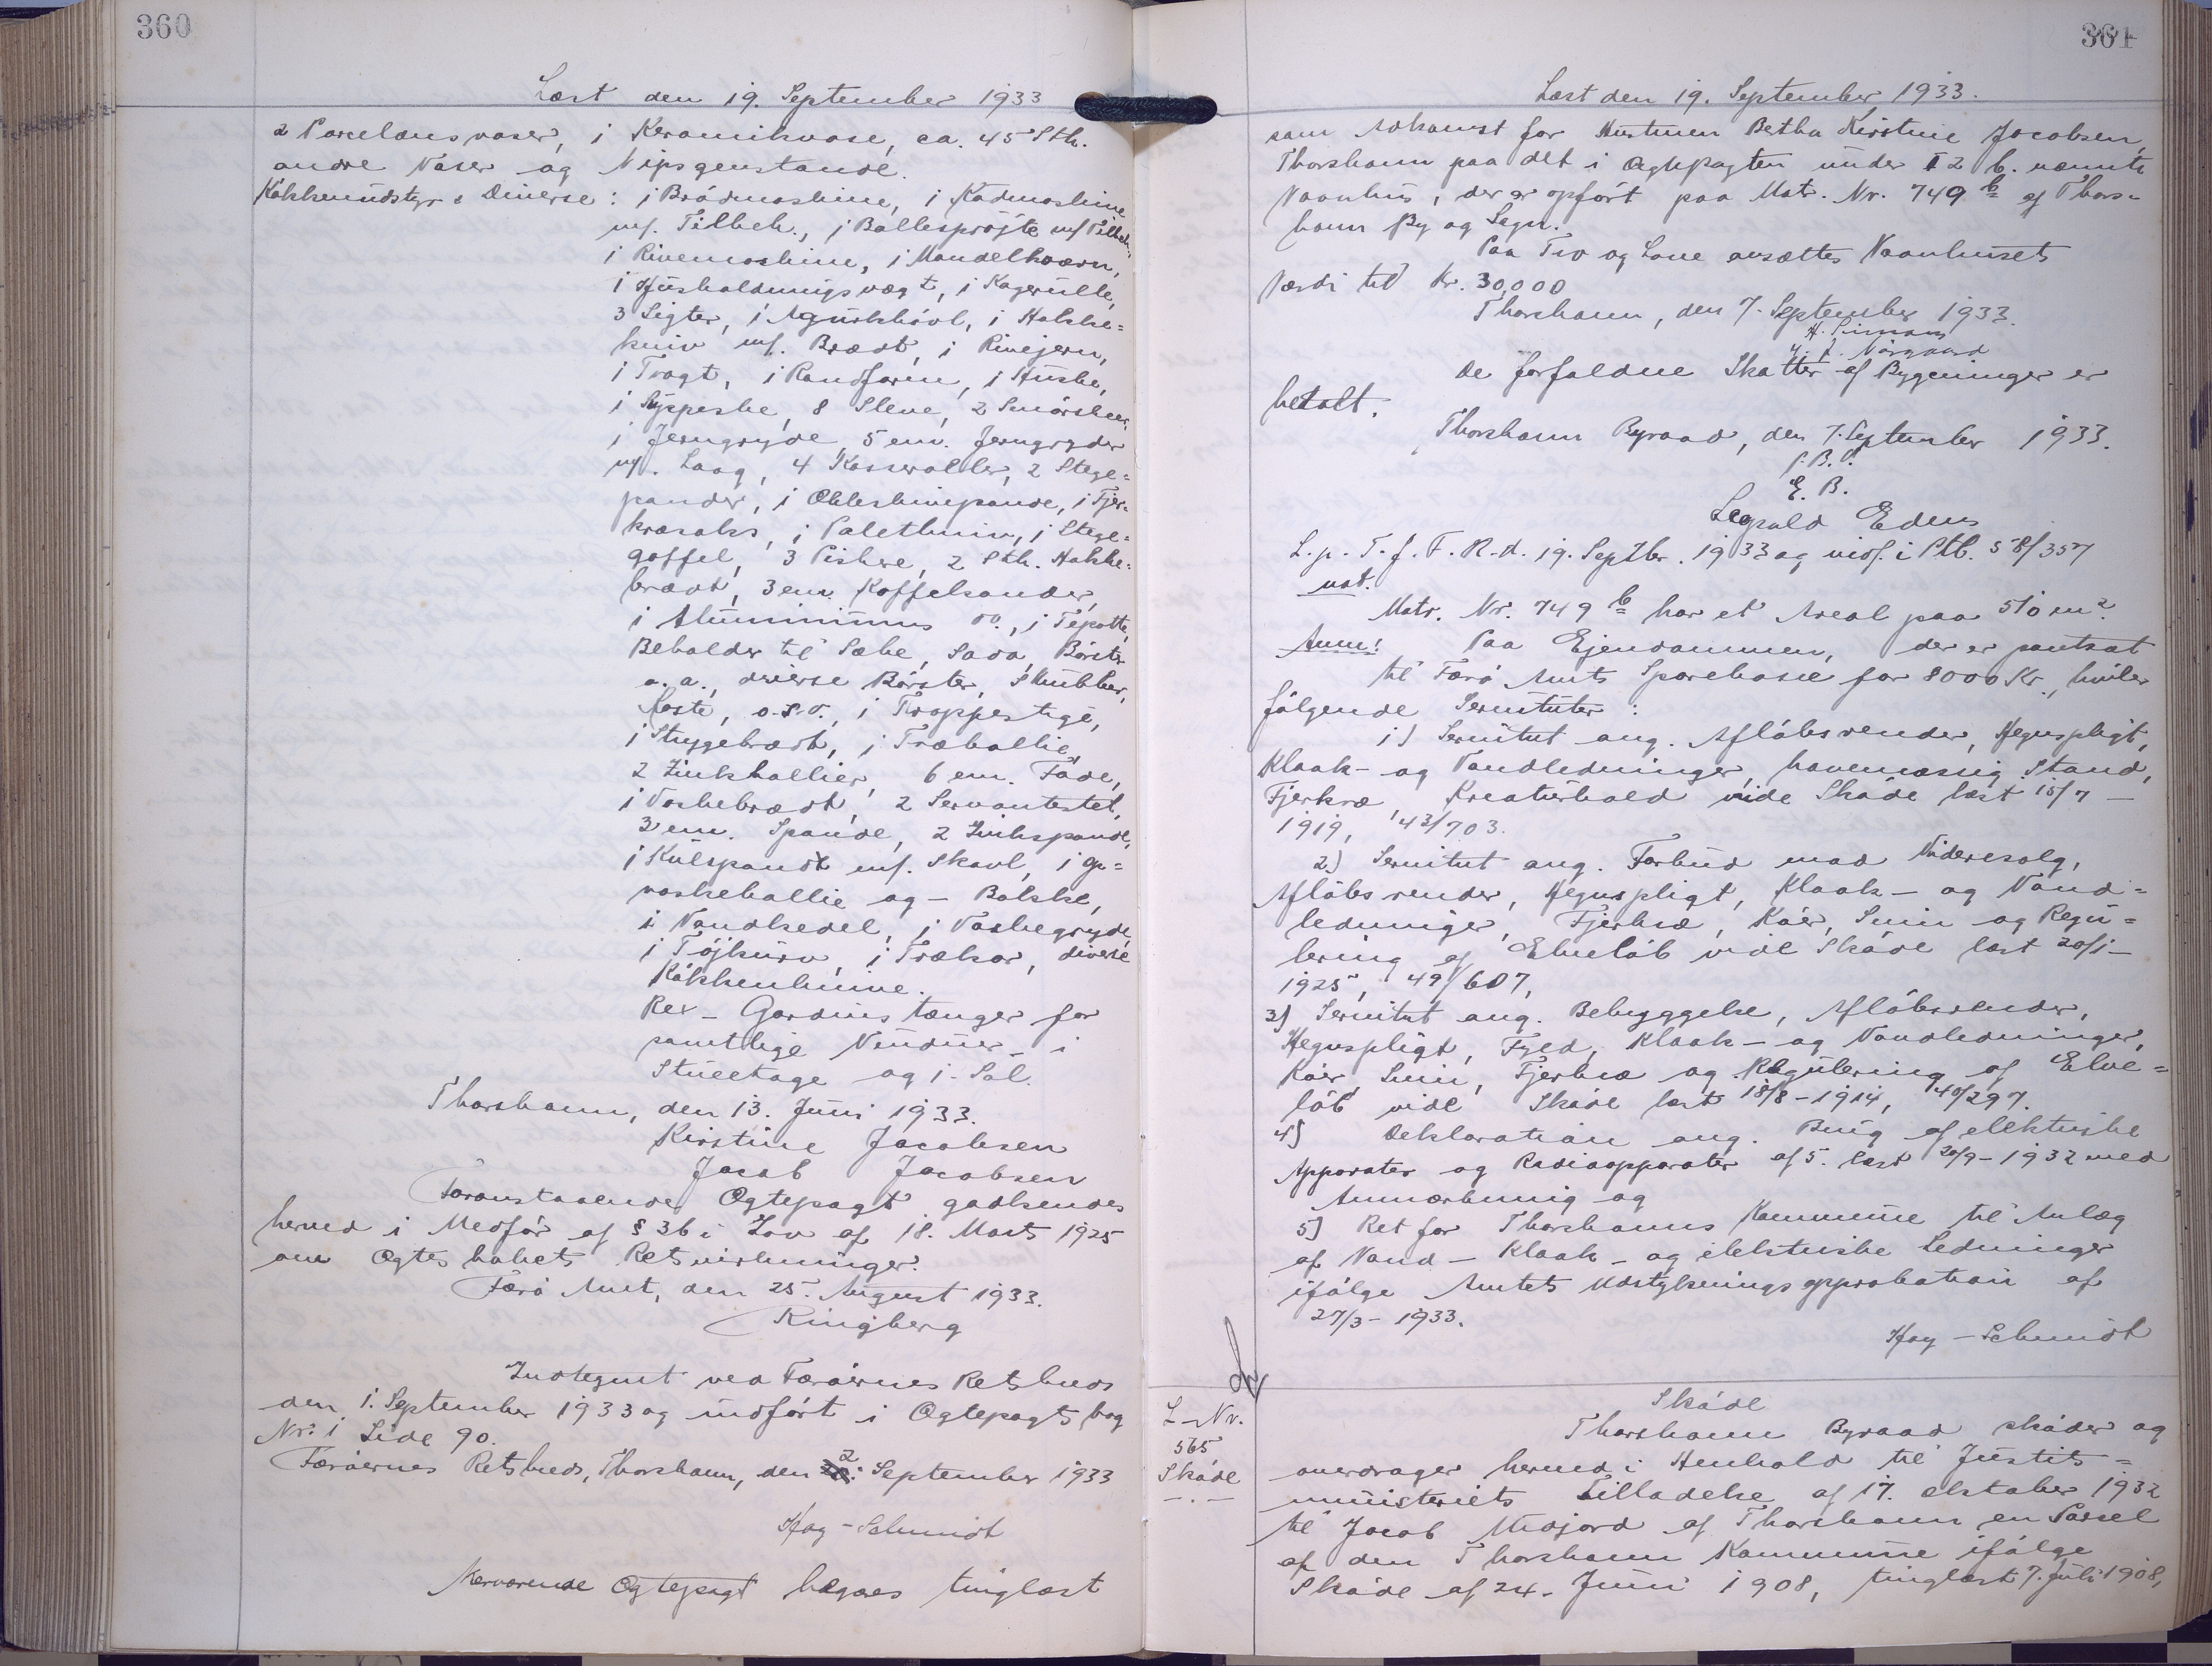 360
Læst den 19. September 1933
2 Porcelænsvaser, 1 Keramikvase, ca. 45 Stk.
andre Vaser og Nipsgenstande.
Køkkenudstyr & Diverse: 1 Brødmaskine, 1 Kødmaskine
m/. Tilbeh., 1 Bollesprøjte m/ Tilbeh.,
1 Rivemaskine, 1 Mandelkværn,
1 Husholdningsvægt, 1 Kagerulle,
3 Sigter, 1 Agurkhøvl, 1 Hakke=
kniv m/. Brædt, 1 Rivejern,
1 Tragt, 1 Randform,
8 Sleve, 2
1 Jerngryde, 5 em. Jerngryder
m/. Laag, 4 Kasseroller, 2 Stege=
pander, 1 Æbleskivepande, 1 Fjer=
kræsaks, 1 Paletkniv, 1 Stege=
gaffel, 3 Piskere, 2 Stk. Hakke=
brædt, 3 em. Kaffekander,
1 Aluminiums do., 1 Tepotte,
Beholder til Sæbe, Soda, Børster
o. a., diverse Børster, Skrubber,
Koste, o.s.v., 1 Trappestige,
1 Strygebrædt, 1 Træballie,
2 Zinkballier, 6 em. Fade,
1 Vaskebrædt, 2 Servantestel,
3 em. Spande, 2 Zinkspande,
1 Kulspand m/. Skovl, 1 Op=
vaskeballie og - Bakke,
1 Vandkedel, 1 Vaskegryde,
1 Tøjkurv, 1 Trækar, diverse
Køkkenknive.
Rex - Gardinstænger for
samtlige Vinduer i
Stueetage og 1. Sal.
Thorshavn, den 13. Juni 1933.
Kirstine Jacobsen
Jacob Jacobsen
Foranstaaende Ægtepagt godkendes
herved i Medfør af § 36 i Lov af 18. Marts 1925
om Ægteskabets Retsvirkninger.
Færø Amt, den 25. August 1933.
Ringberg
Indtegnet ved Færøernes Retskreds
den 1. September 1933 og indført i Ægtepagtsbog
Nr. 1 Side 90.
Færøernes Retskreds, Thorshavn, den 2 September 1933
Hay - Schmidt
Nærværende Ægtepagt begæres tinglæst
361
Læst den 19. September 1933.
som Adkomst for Hustruen Betha Kirstine Jacobsen,
Thorshavn paa det i Ægtepagten under I 2 b. nævnte
Vaanhus, der er opført paa Matr. Nr. 749 b af Thors=
havn By og Sogn.
Paa Tro og Love ansættes Vaanhusets
Værdi til Kr. 30,000
Thorshavn, den 7. September 1933.
De forfaldne Skatter af Bygninger er
betalt.
Thorshavn Byraad, den 7. September 1933.
P.B.V.
E. B.
L. p. T. f. F. R. d. 19. Septbr. 1933 og indf. i Ptb. 58/357
not.
Matr. Nr. 749 b har et Areal paa 510 m².
Anm: Paa Ejendommen, der er pantsat
til Færø Amts Sparekasse for 8000 Kr., hviler
følgende Servituter:
1) Servitut ang. Afløbsrender, Hegnspligt,
Kloak- og Vandledninger, havemæssig Stand,
Fjerkræ, Kreaturhold vide Skøde læst 15/7 -
1919, 43/703.
2) Servitut ang. Forbud mod Videresalg,
Afløbsrender, Hegnspligt, Kloak- og Vand=
ledninger, Fjerkræ, Køer, Svin og Regu=
lering af Elveløb vide Skøde læst 20/1 -
1925, 49/607,
3) Servitut ang. Bebyggelse, Afløbsrender,
Hegnspligt, Fyld, Kloak- og Vandledninger,
Køer, Svin, Fjerkræ og Regulering af Elve=
løb vide Skøde læst 18/8 - 1914, 40/297.
4) Deklaration ang. Brug af elektriske
Apparater og Radioapparater af 5. læst 20/9 - 1932 med
Anmærkning og
5) Ret for Thorshavns Kommune til Anlæg
af Vand - Kloak - og elektriske Ledninger
ifølge Amtets Udstykningsapprobation af
27/3 - 1933.
Hay - Schmidt
L - Nr.
565
Skøde
Skøde
Thorshavn Byraad skøder og
overdrager herved i Henhold til Justits=
ministeriets Tilladelse af 17. Oktober 1932
til Jacob Midjord af Thorshavn en Parcel
af den Thorshavn Kommune ifølge
Skøde af 24. Juni 1908, tinglæst 7. Juli 1908,